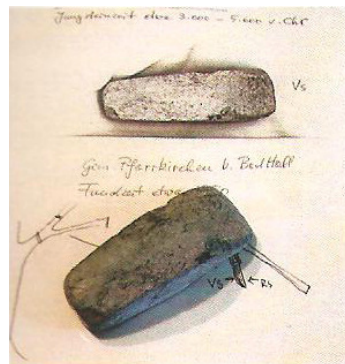 Jungsteinzeit etwa 3.000 – 5.000 v. Chr
Vs
Gem Pfarrkirchen b. Bad Hall
Fundzeit etwa
Vs Rs